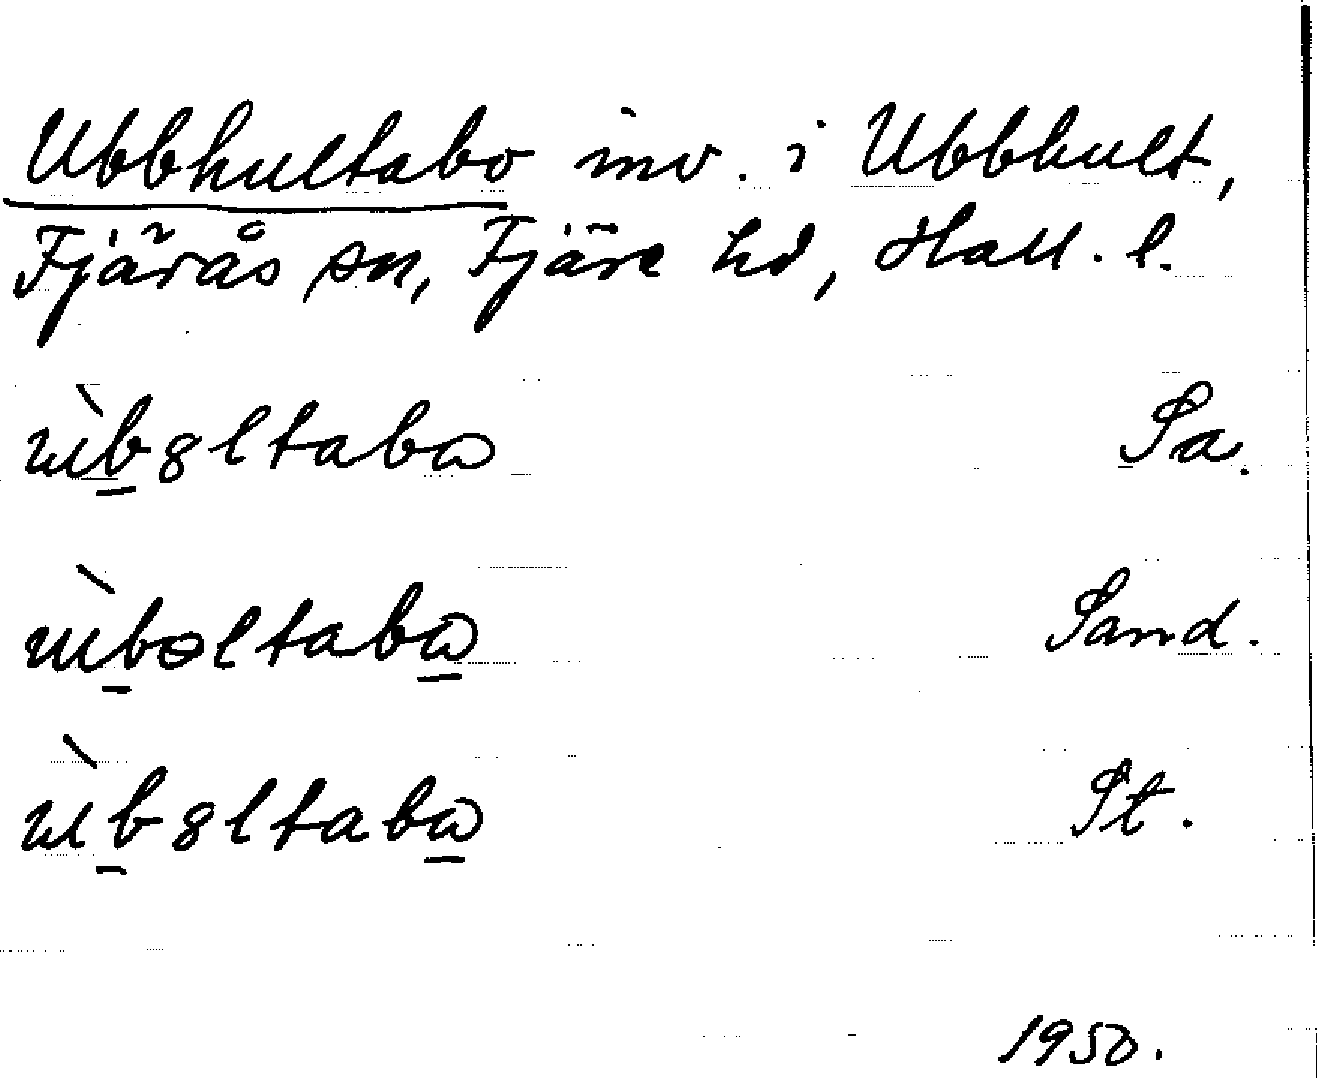 Ubbhultabo inv. i Ubbhult,
Fjärås sn, Fjäre hd, Hall. l.
ùb̲8ltabɷ Sa.
ùb̲ɵltabɷ̲ Sand.
ùb̲8ltabɷ̲ St.
1950.